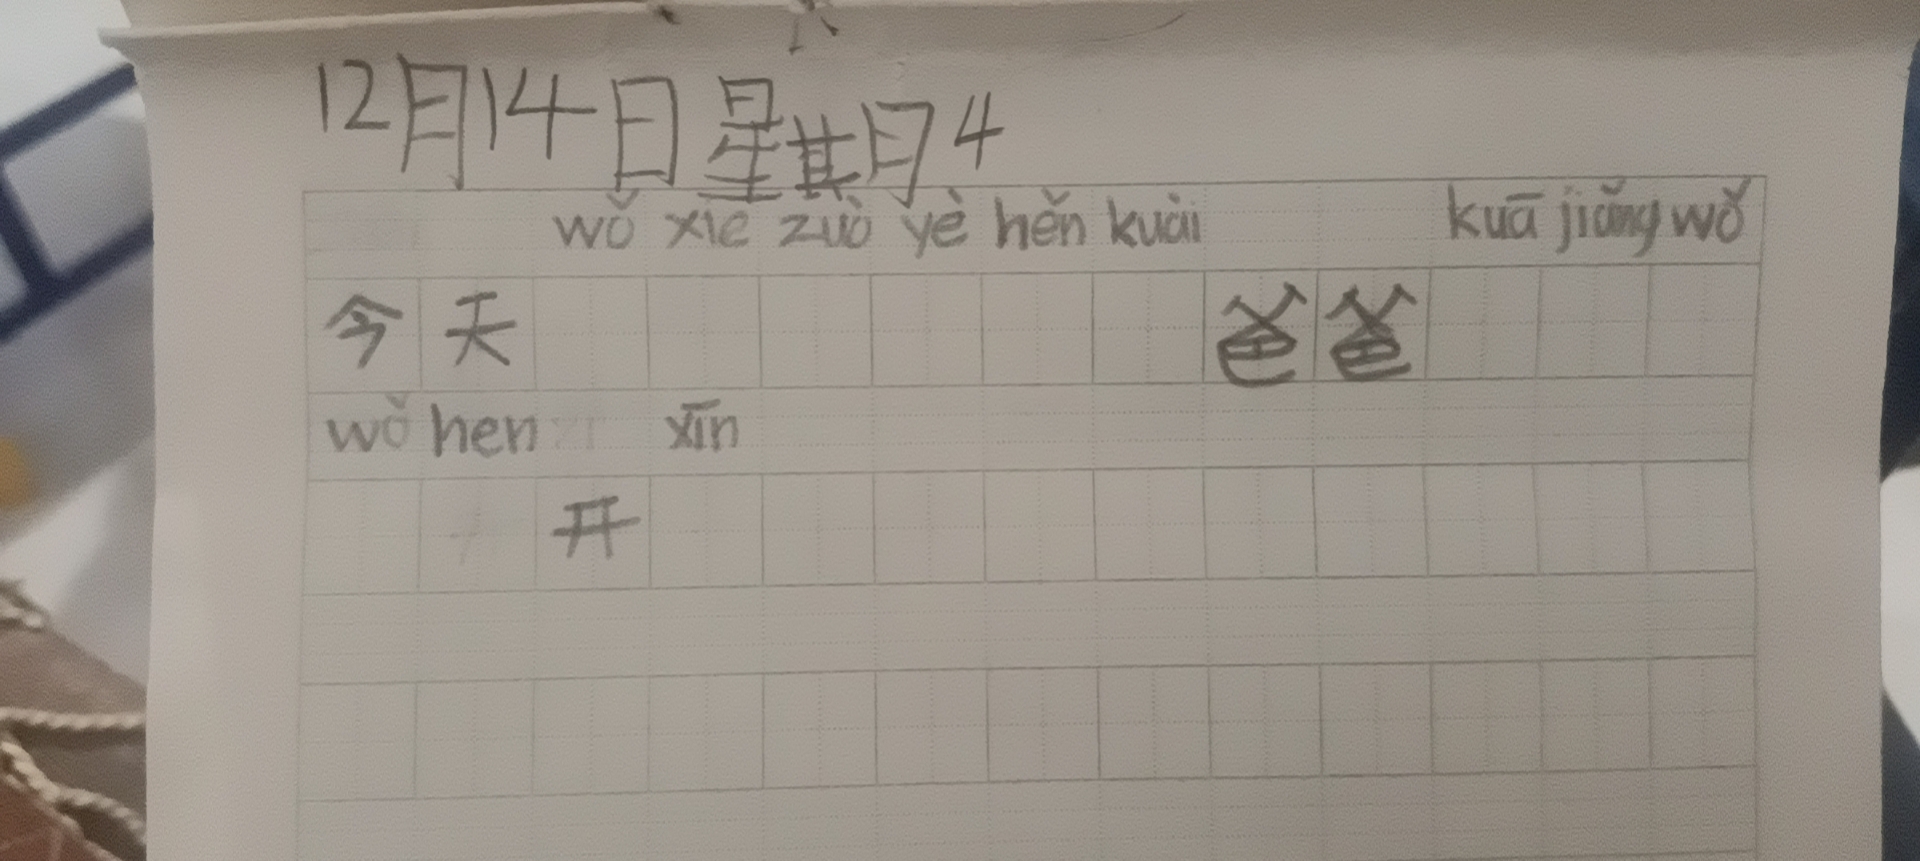 12月14日星期4
wǒ xie zuò yè hěn kuài kuā jiǎng wǒ
今天爸爸
wǒ hen xīn
开